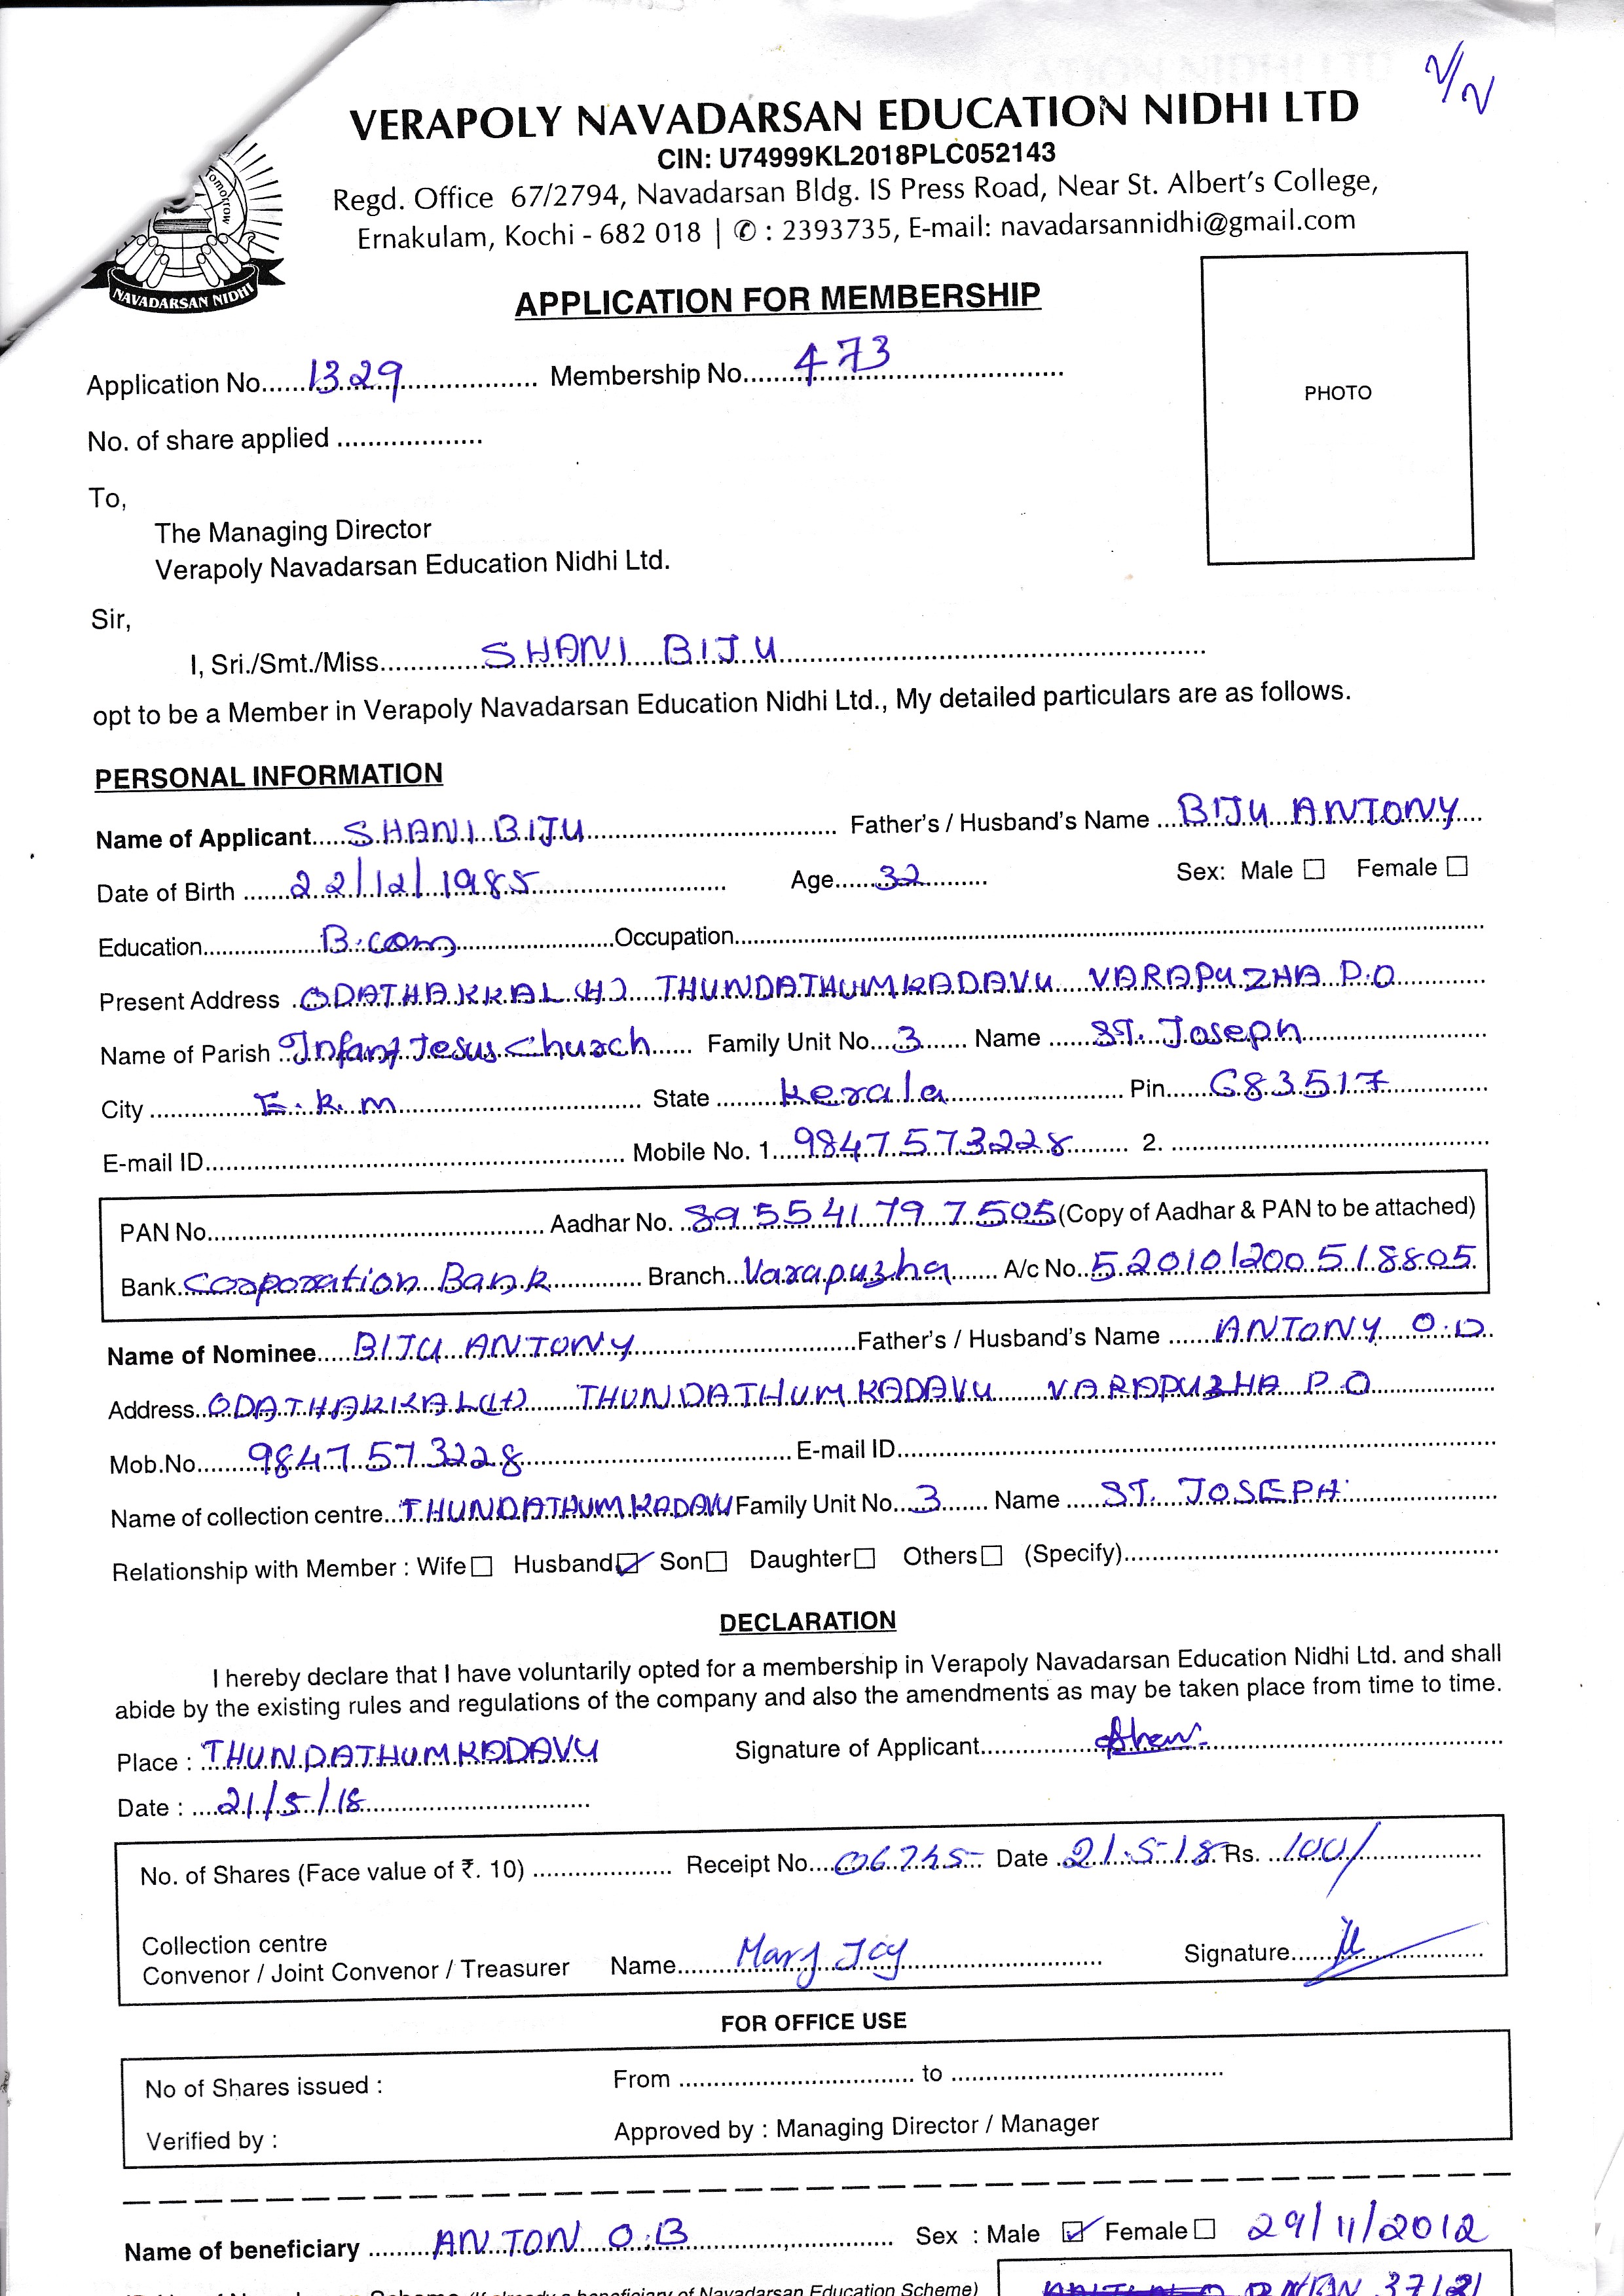 VERAPOLY NAVADARSAN EDUCATION NIDHI LTD
CIN: U74999KL2018PLC052143
Regd. Office 67/2794, Navadarsan Bldg. IS Press Road, Near St. Albert's College,
Ernakulam, Kochi - 682 018 | ✆ : 2393735, E-mail: navadarsannidhi@gmail.com
Tomorrow
NAVADARSAN NIDHI
APPLICATION FOR MEMBERSHIP
Application No. 1329 Membership No. 473
PHOTO
No. of share applied
To,
The Managing Director
Verapoly Navadarsan Education Nidhi Ltd.
Sir,
I, Sri./Smt./Miss SHANI BIJU
opt to be a Member in Verapoly Navadarsan Education Nidhi Ltd., My detailed particulars are as follows.
PERSONAL INFORMATION
Name of Applicant SHANI BIJU Father's / Husband's Name BIJU ANTONY
Date of Birth 22/12/1985 Age 32 Sex: Male ☐ Female ☐
Education B.com Occupation
Present Address ODATHAKKAL (H) THUNDATHUMKADAVU VARAPUZHA P.O
Name of Parish Infant Jesus Church Family Unit No. 3 Name ST. Joseph
City E.K.M State Kerala Pin 683517
E-mail ID Mobile No. 1. 9847573228 2.
PAN No. Aadhar No. 895541797505 (Copy of Aadhar & PAN to be attached)
Bank Cooporation Bank Branch Varapuzha A/c No. 520101200518805
Name of Nominee BIJU ANTONY Father's / Husband's Name ANTONY O.D
Address ODATHAKKAL (H) THUNDATHUMKADAVU VARAPUZHA P.O
Mob.No. 9847573228 E-mail ID
Name of collection centre THUNDATHUMKADAVU Family Unit No. 3 Name ST. JOSEPH
Relationship with Member : Wife ☐ Husband ☑ Son ☐ Daughter ☐ Others ☐ (Specify)
DECLARATION
I hereby declare that I have voluntarily opted for a membership in Verapoly Navadarsan Education Nidhi Ltd. and shall
abide by the existing rules and regulations of the company and also the amendments as may be taken place from time to time.
Place : THUNDATHUMKADAVU Signature of Applicant Shani
Date : 21/5/18
No. of Shares (Face value of ₹. 10) Receipt No. 06745 Date 21.5.18 Rs. 100/
Collection centre
Convenor / Joint Convenor / Treasurer Name Mary Joy Signature
FOR OFFICE USE
No of Shares issued : From to
Verified by : Approved by : Managing Director / Manager
Name of beneficiary ANTON O.B Sex : Male ☑ Female ☐ 29/11/2012
(If already a beneficiary of Navadarsan Education Scheme)